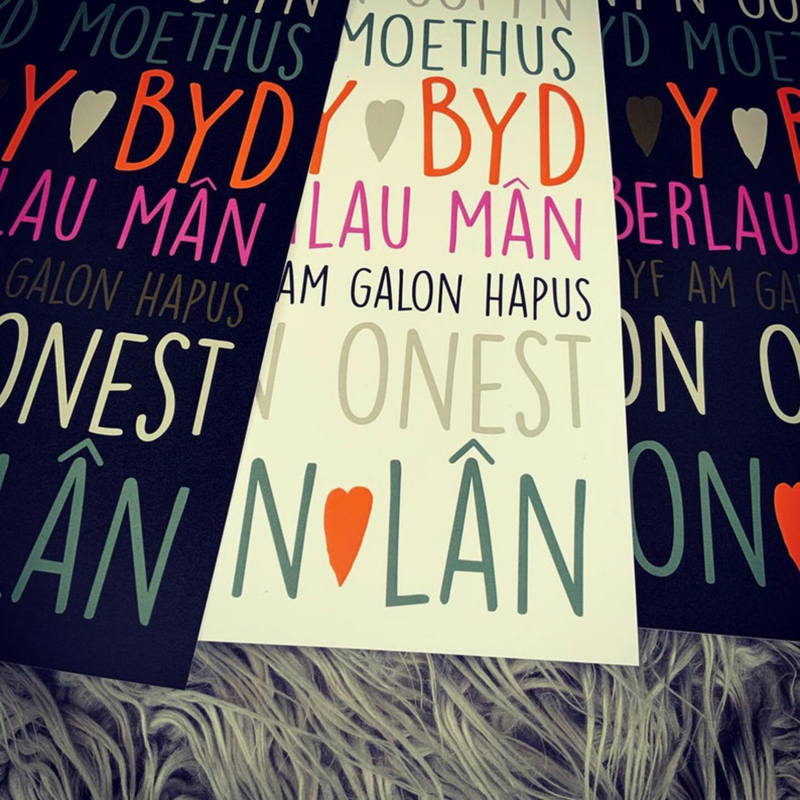 MOETHUS
Y BYD
LAU MÂN
GALON HAPUS
ONEST
LÂN
MOETHUS
Y BYD
LAU MÂN
AM GALON HAPUS
N ONEST
N LÂN
Y
BERLAU
YF AM GA
ON O
ON